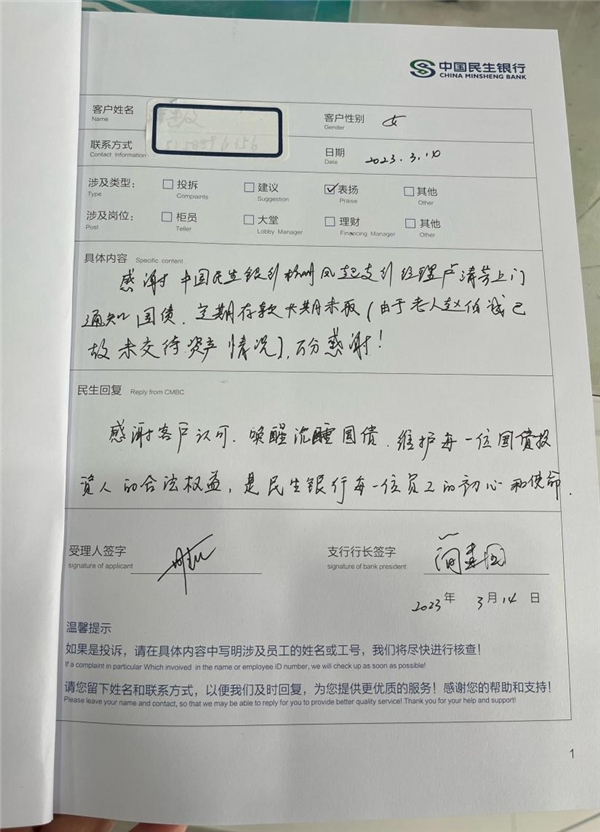 中国民生银行
CHINA MINSHENG BANK
客户姓名
Name
客户性别 女
Gender
联系方式
Contact Information
日期 2023.3.10
Date
涉及类型： □投拆 □建议 ☑表扬 □其他
Type Complaints Suggestion Praise Other
涉及岗位： □柜员 □大堂 □理财 □其他
Post Teller Lobby Manager Financing Manager Other
具体内容 Specific content
感谢中国民生银行杭州凤起支行经理卢清芳上门
通知国债、定期存款长期未取（由于老人赵伯诚已
故未交待资产情况），万分感谢！
民生回复 Reply from CMBC
感谢客户认可，唤醒沉睡国债，维护每一位国债投
资人的合法权益，是民生银行每一位员工的初心和使命.
受理人签字
signature of applicant
支行行长签字
signature of bank president
2023 年 3 月 14 日
温馨提示
如果是投诉，请在具体内容中写明涉及员工的姓名或工号，我们将尽快进行核查！
If a complaint in particular Which invoived in the name or employee ID number, we will check up as soon as possible!
请您留下姓名和联系方式，以便我们及时回复，为您提供更优质的服务！感谢您的帮助和支持！
Please leave your name and contact, so that we may be able to reply for you to provide better quality service! Thank you for your help and support!
1